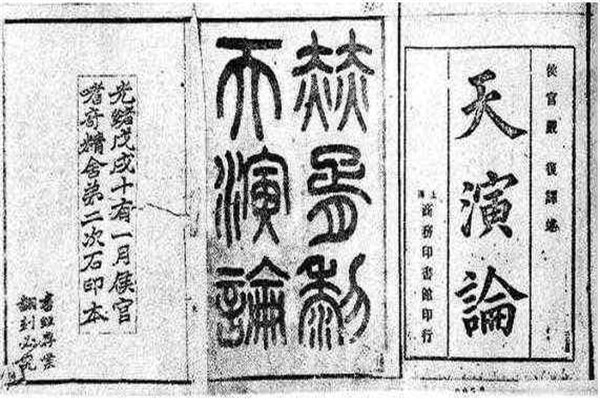 侯官嚴復譯述
天演論
上海商務印書館印行
赫胥黎
天演論
光緒戊戌十有一月侯官
嗜奇精舍第二次石印本
翻刻必究